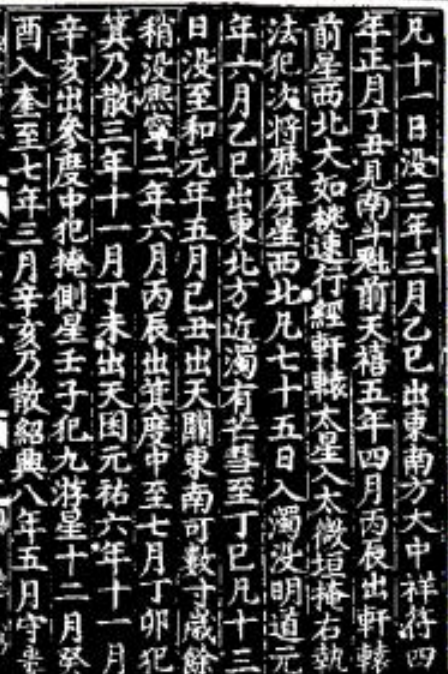 凡十一日没三年三月乙巳出東南方大中祥符四
年正月丁丑見南斗魁前天禧五年四月丙辰出軒轅
前星西北大如桃速行經軒轅太星入太微垣掩右執
法犯次將歷屏星西北凡七十五日入濁没明道元
年六月乙巳出東北方近濁有芒彗至丁巳凡十三
日没至和元年五月己丑出天關東南可數寸歲餘
稍没熙寧二年六月丙辰出箕度中至七月丁卯犯
箕乃散三年十一月丁未出天囷元祐六年十一月
辛亥出參度中犯掩側星壬子犯九游星十二月癸
酉入奎至七年三月辛亥乃散紹興八年五月守婁